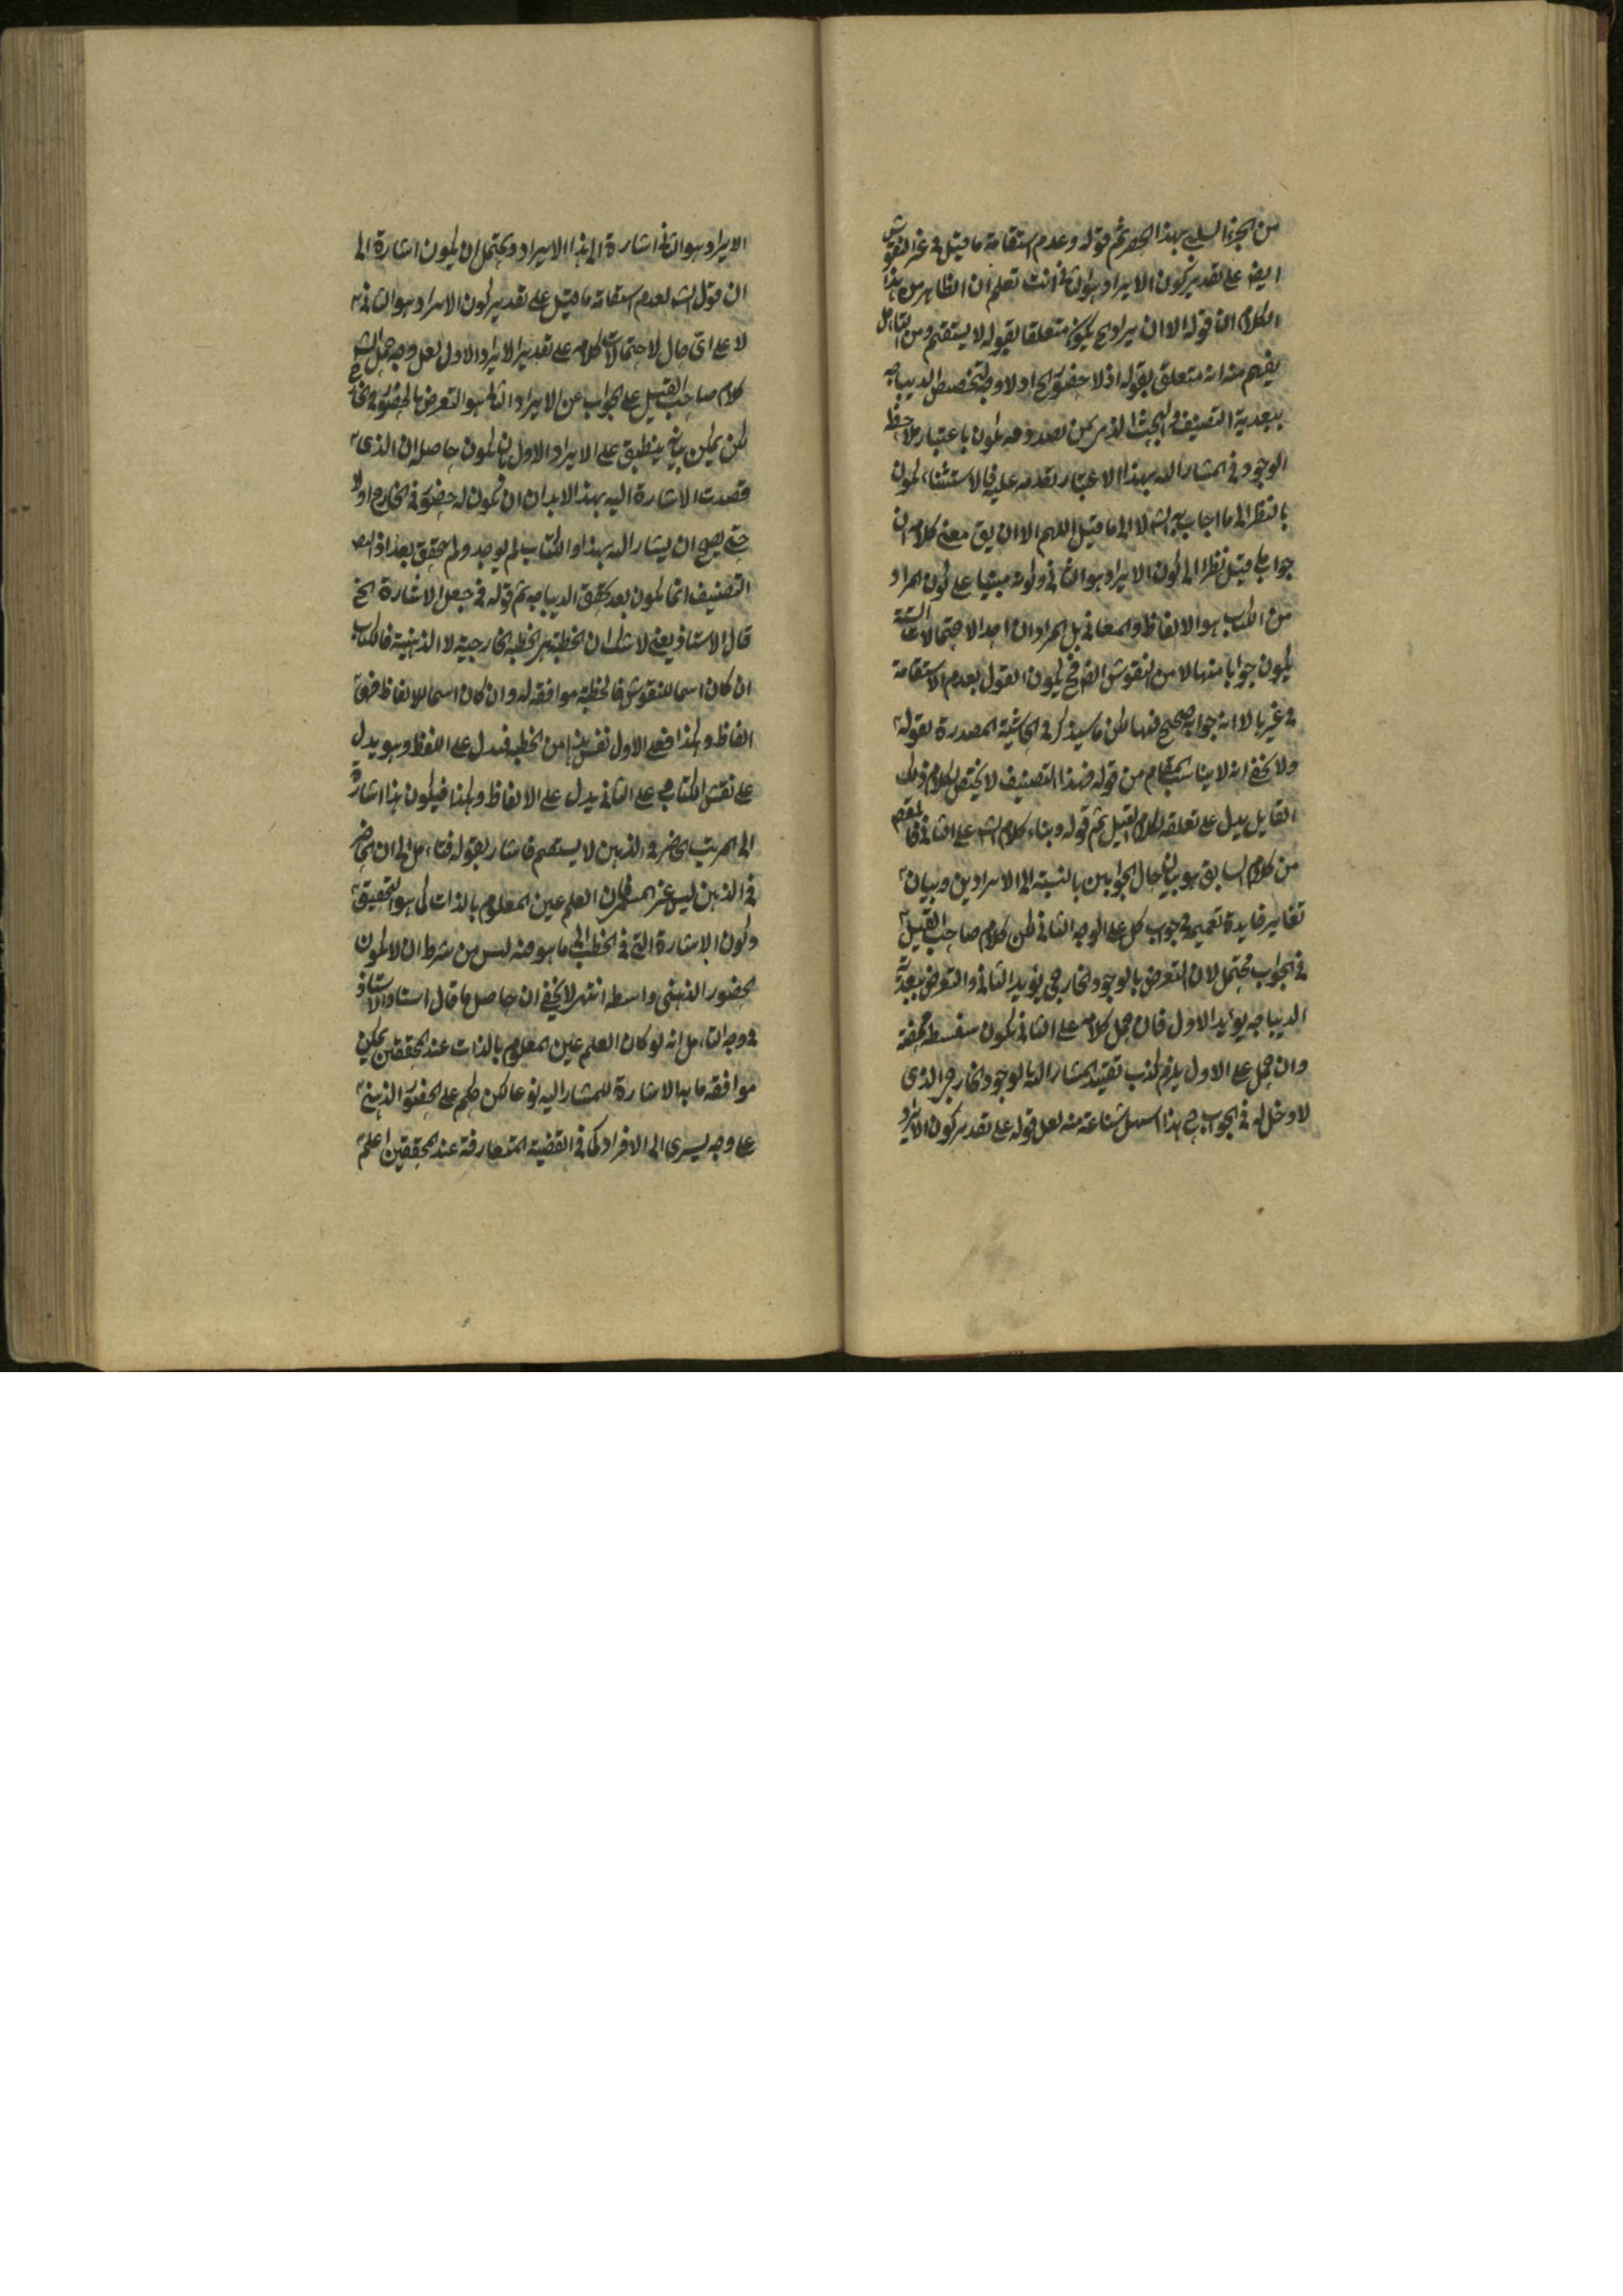 من الجزء السلبي بهذا الحصر ثم قوله وعدم استقامة ما قيل في غير النقوش
ايضا على تقدير كون الايراد هو الثاني انت تعلم ان الظاهر من هذا
الكلام ان قوله الا ان يراد ح يكون متعلقا بقوله لا يستقيم ومن التأمل
يفهم منه انه متعلق بقوله اذ لا حضور الخ اذ لا وجه لتخصيص الديباجه
ببعدية التصنيف
الوجود في المشار اليه بهذا الاعتبار تقدمه عليه فالاستثناء يكون
بالنظر الى ما اجاب به الش لا الى ما قيل اللهم الا ان يق معنى كلامه ان
جواب ما قيل نظرا الى كون الايراد هو الثاني وكونه مبنيا على كون المراد
من الكتاب هو الالفاظ والمعاني بل المراد ان احد الاحتمالات الستة
يكون جوابا منها لا من النقوش ايضا فح يكون القول بعدم الاستقامة
في غيرها لا انه جواب صحيح فيها لكن ما سيذكر في الحاشية المصدرة بقوله
ولا يخفى انه لا يناسب المقام من قوله فهذا التصنيف لا يختص بكلام ذلك
القايل يدل على تعلقه بكلام القيل ثم قوله وبناء كلام الش على الثاني
من كلام السابق هو بيان حال الجوابين بالنسبة الى الايرادين وبيان
تغاير فايدة تعميمه في جواب كل على الوجه الثاني لكن كلام صاحب القيل
في الجواب محتمل لان التعرض بالوجود الخارجي يؤيد الثاني والتعرض ببعدية
الديباجه يؤيد الاول فان حمل كلامه على الثاني يكون سفسطة محضة
وان حمل على الاول يلزم كذب تقييد المشار اليه بالوجود الخارجي الذي
لا دخل له في الجواب هذا اسهل شناعة منه لعل قوله على تقدير كون الايراد
الايراد هو الثاني اشارة الى هذا الايراد ويحتمل ان يكون اشارة الى
ان قول الش لعدم استقامة ما قيل على تقدير كون الايراد هو الثاني
لا على اي حال لاحتمالات كلامه على تقدير الايراد الاول لعل وجه حمل الش
كلام صاحب القيل على الجواب عن الايراد الثاني هو التعرض بالحضور في الخارج
لكن يمكن بيانه ينطبق على الايراد الاول بان يكون حاصله ان الذي
قصدت الاشارة اليه بهذا لابد ان يكون له حضور في الخارج اولا
حتى يصح ان يشار اليه بهذا والكتاب لم يوجد ولم يتحقق بعد اذ
التصنيف انما يكون بعد تحقق الديباجه ثم قوله في جعل الاشارة الخ
قال الاستاذ يعني لا شك ان الخطبة هي الخطبة الخارجية لا الذهنية فالكتاب
ان كان اسما للنقوش فالخطبة موافقه له وان كان اسما للالفاظ فهي
الفاظ وهكذا فعلى الاول نقش هذا من الخطبة فيدل على اللفظ وهو يدل
على نقش الكتاب وعلى الثاني يدل على الالفاظ وهكذا فيكون هذا اشارة
الى المرتب الحاضر في الذهن لا يستقيم فاشار بقوله فتأمل الى ان الحاضر
في الذهن ليس غير المسمى فان العلم عين المعلوم بالذات كما هو التحقيق
وكون الاشارة التي في الخطب الى ما هو منه ليس من شرط ان لا يكون
الحضور الذهني واسطه انتهى لا يخفى ان حاصل ما قال استاد الاستاذ
في وجه التأمل انه لو كان العلم عين المعلوم بالذات عند المحققين يمكن
موافقه ما به الاشارة للمشار اليه نوعا لكن حكم على الحضور الذهني
على وجه يسري الى الافراد كما في القضية المتعارفة عند المحققين اعلم